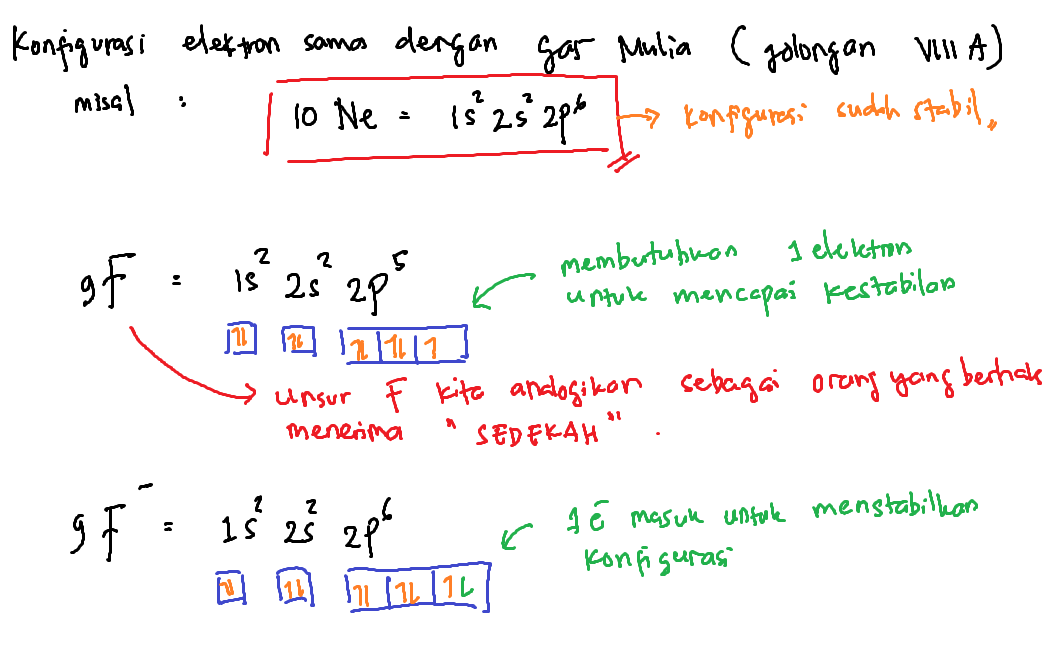 Konfigurasi elektron sama dengan gas Mulia (golongan VIII A)
misal :
10 Ne = 1s² 2s² 2p⁶ → konfigurasi sudah stabil,,
9F = 1s² 2s² 2p⁵
membutuhkan 1 elektron
untuk mencapai kestabilan
1l 1l 1l 1l 1
→ unsur F kita analogikan sebagai orang yang berhak
menerima "SEDEKAH".
9F⁻ = 1s² 2s² 2p⁶
1ē masuk untuk menstabilkan
konfigurasi
1l 1l 1l 1l 1l